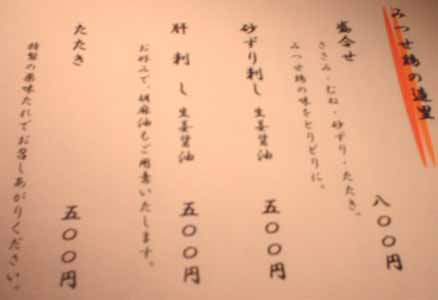 みつせ鶏の造里
盛合せ
ささみ・むね・砂ずり・たたき。
みつせ鶏の味をとりどりに。
八〇〇円
砂ずり刺し 生姜醤油
五〇〇円
肝刺し 生姜醤油
お好みで、胡麻油もご用意いたします。
五〇〇円
たたき
特製の薬味たれでお召しあがりください。
五〇〇円